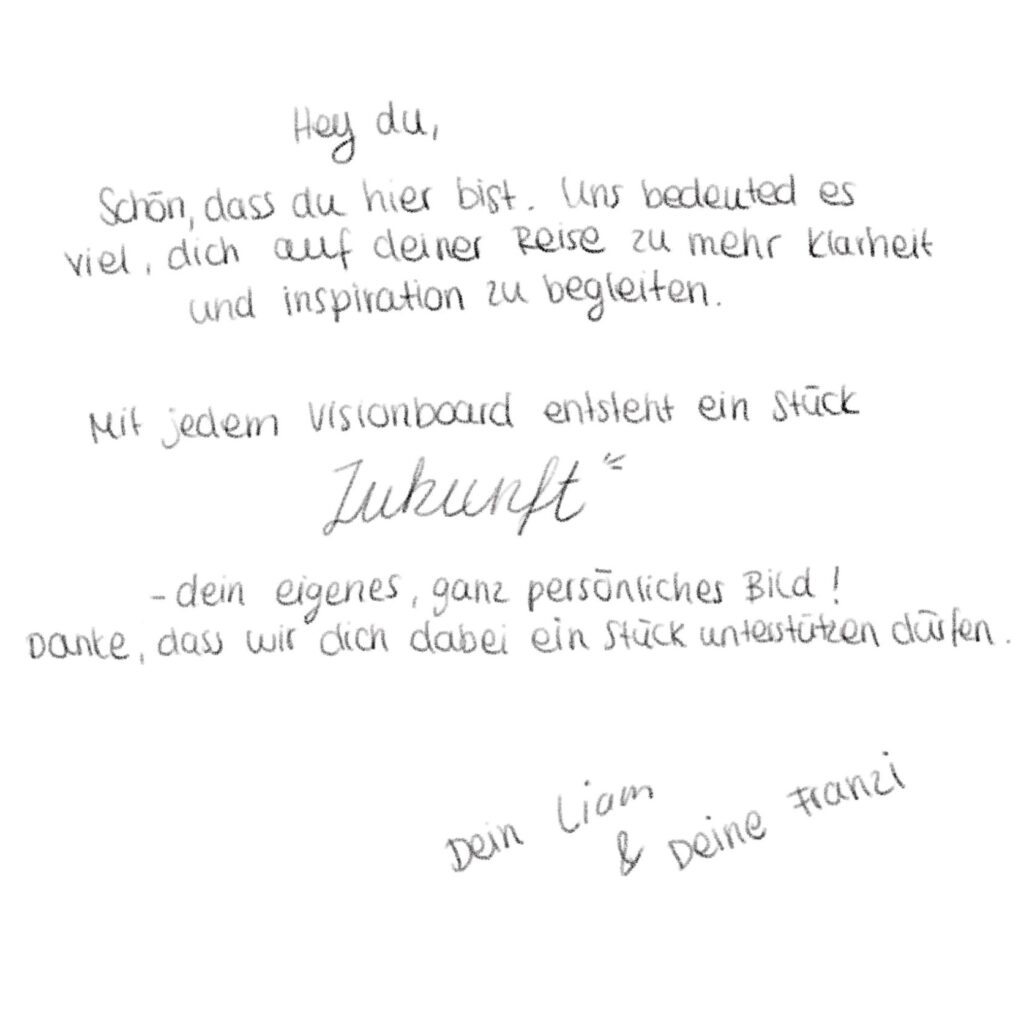 Hey du,
Schön, dass du hier bist. Uns bedeuted es
viel, dich auf deiner Reise zu mehr Klarheit
und inspiration zu begleiten.
Mit jedem Visionboard entsteht ein Stück
Zukunft
- dein eigenes, ganz persönliches Bild!
Danke, dass wir dich dabei ein Stück unterstützen dürfen.
Dein Liam
& Deine Franzi